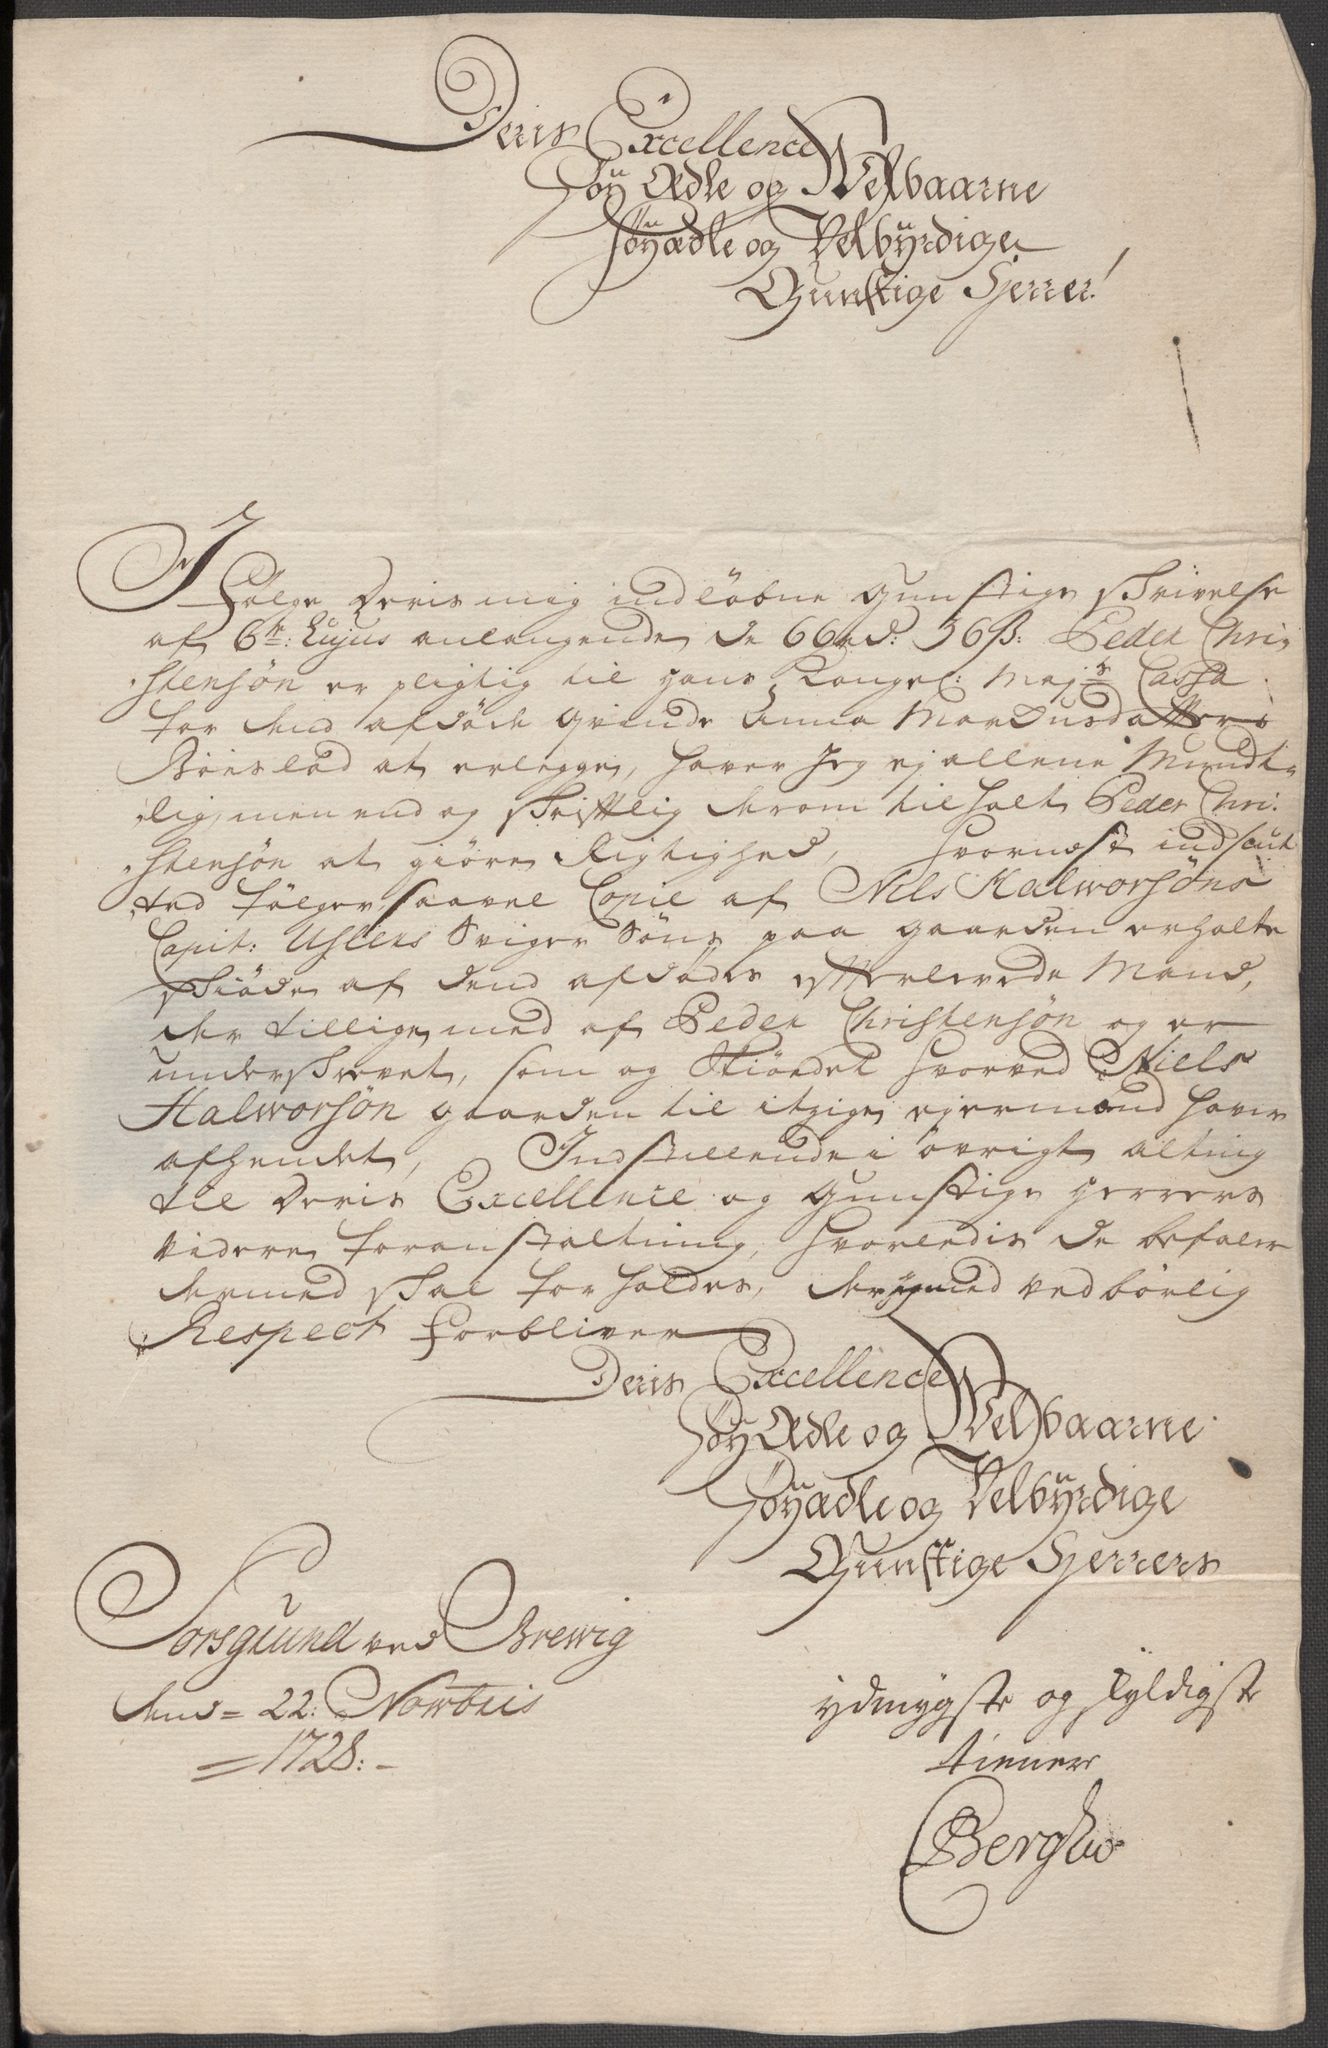 Deris Excellence
Høy Ædle og Welbaarne
Høyædle og Velbyrdige
Gunstige Herrer!
I Følge Deris mig indløbne gunstige skrivelse
af 6te: Hujus anlangende de 66 rd: 56 ß: Peder Chri-
stensøn er pligtig til Hans Kongel: Majts Cassa
for dend afdøde qvinde Anna Mordusdatters
Boeslod at erlegge, haver Jeg ej allene Mundt-
lig, men end og skriftlig derom tilholt Peder Chri-
stensøn at giøre Rigtighed, hvornæst indslut-
ted følger saavel Copie af Niels Halworsøns
Capit: Uslers Sviger Søns paa gaarden erholte
skiøde af dend afdødes efterlevede Mand,
der tillige med af Peder Christensøn og er
underskrevet, som og Skiødet hvorved Niels
Halworsøn gaarden til itzige ejermand haver
afhendet, Indstillende i øvrigt alting
til Deris Excellence og gunstige Herrers
videre foranstaltning, hvorledis de befaler
dermed skal forholdes, der med vedbørlig
Respect forbliver
Deris Excellence
Høy Ædle og Welbaarne
Høyædle og Velbyrdige
Gunstige Herrers
Porsgrund ved Brewig
dend = 22: Novbris
1728:-
ydmygste og skyldigste
tiener